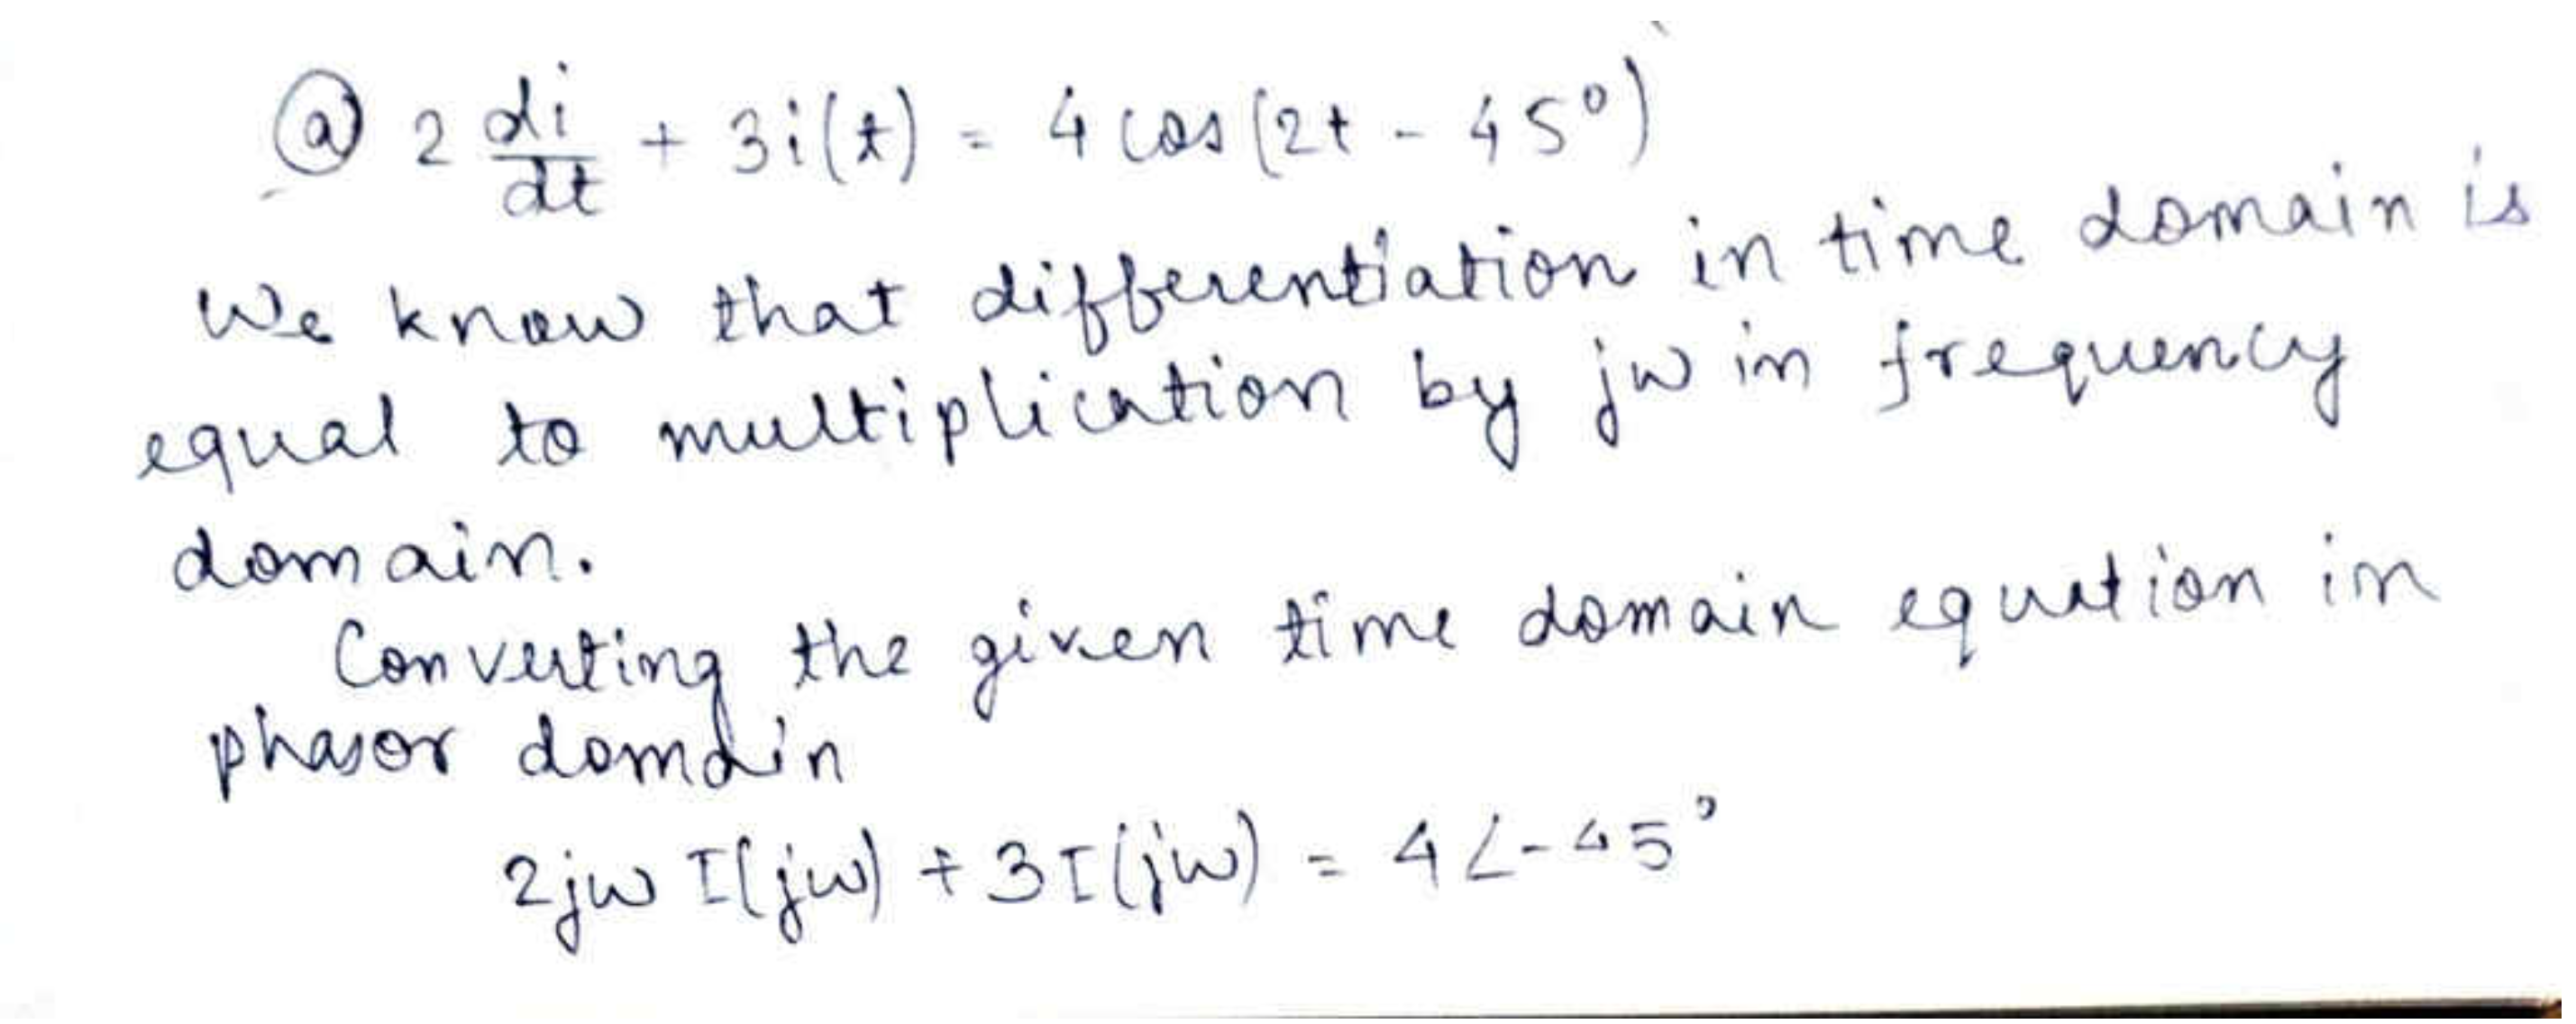 (a) 2 di/dt + 3i(t) = 4 cos(2t - 45°)
We know that differentiation in time domain is
equal to multiplication by jw in frequency
domain.
Converting the given time domain equation in
phasor domain
2jw I(jw) + 3I(jw) = 4∠-45°